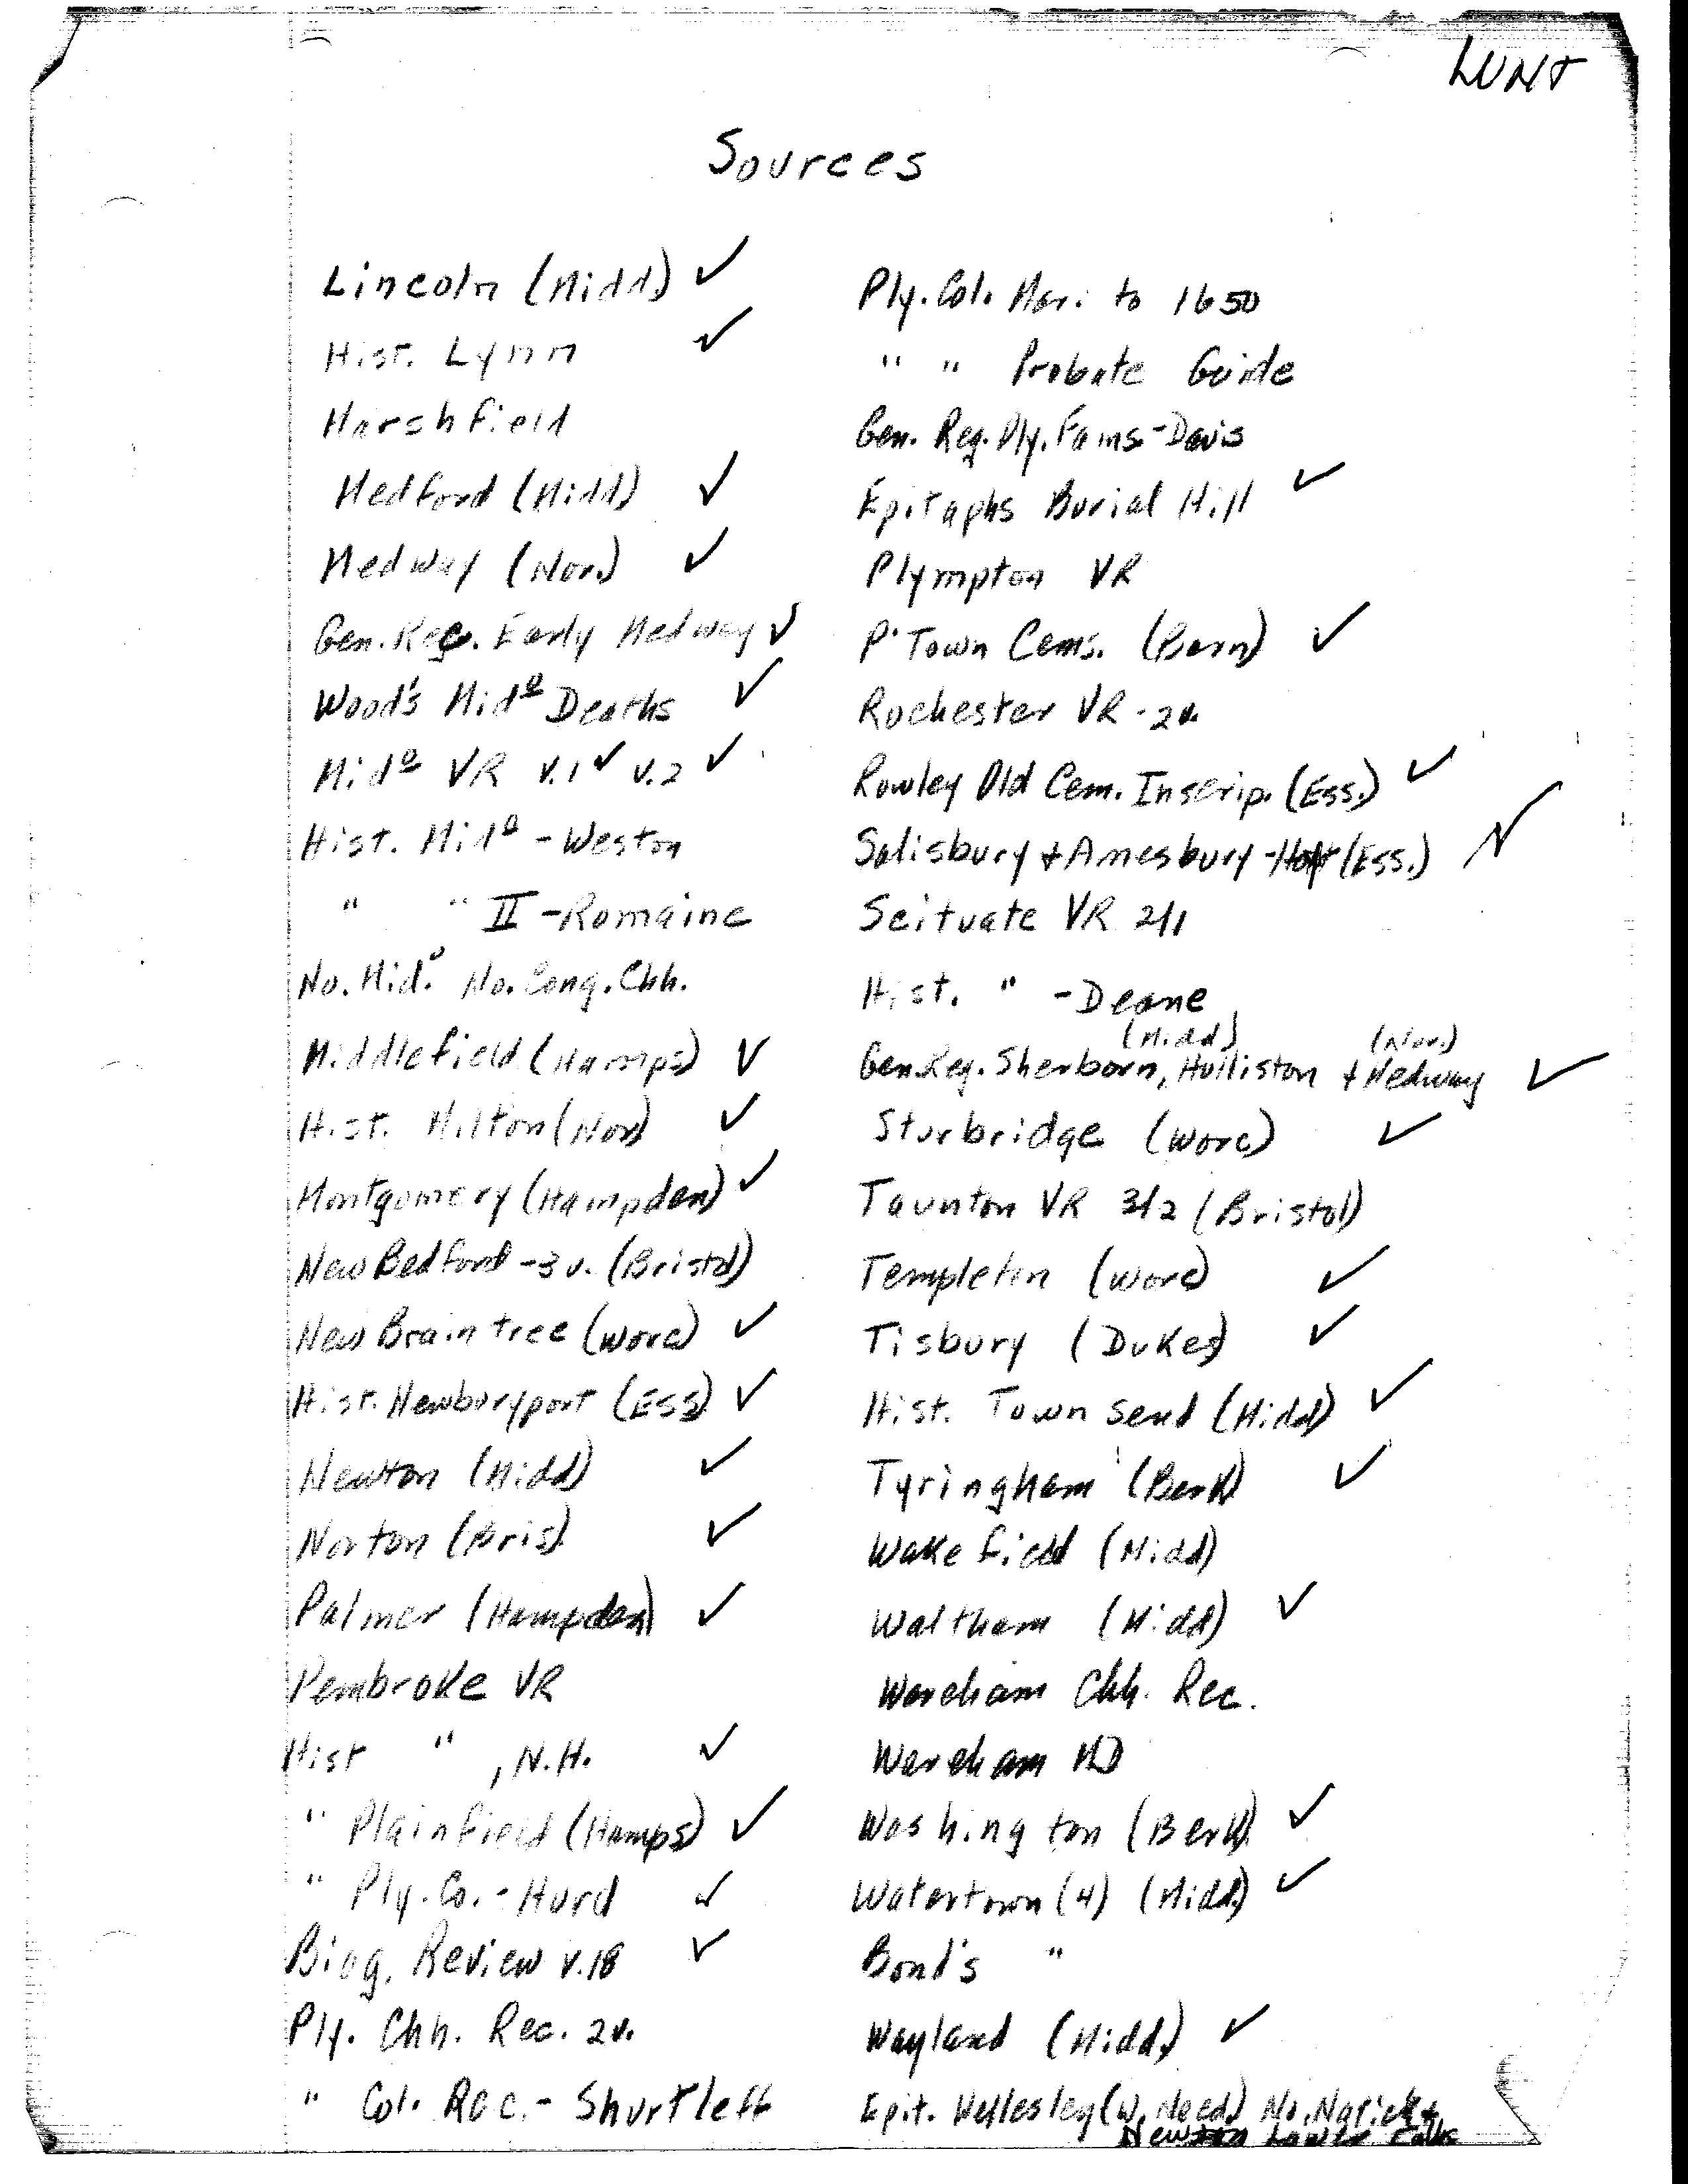 LUNT
Sources
Lincoln (Midd) ✓
Hist. Lynn ✓
Marshfield
Medford (Midd) ✓
Medway (Nor.) ✓
Gen. Reg. Early Medway ✓
Wood's Midº Deaths ✓
Midº VR v.1 ✓ v.2 ✓
Hist. Midº - Weston
" " II - Romaine
No. Mid.º No. Cong. Chh.
Middlefield (Hamps) ✓
Hist. Milton (Nor) ✓
Montgomery (Hampden) ✓
New Bedford - 3 v. (Bristol)
New Braintree (Worc) ✓
Hist. Newburyport (Ess) ✓
Newton (Midd) ✓
Norton (Bris) ✓
Palmer (Hampden) ✓
Pembroke VR
Hist " , N.H. ✓
" Plainfield (Hamps) ✓
" Ply. Co. - Hurd ✓
Biog. Review v.18 ✓
Ply. Chh. Rec. 2v.
" Col. Rec. - Shurtleff
Ply. Col. Mar. to 1650
" " Probate Guide
Gen. Reg. Ply. Fams - Davis
Epitaphs Burial Hill ✓
Plympton VR
P'Town Cems. (Barn) ✓
Rochester VR - 2v.
Rowley Old Cem. Inscrip. (Ess.) ✓
Salisbury + Amesbury - Hoyt (Ess.) ✓
Scituate VR 2/1
Hist. " - Deane
(Midd) (Nor.)
Gen. Reg. Sherborn, Holliston + Medway ✓
Sturbridge (Worc) ✓
Taunton VR 3/2 (Bristol)
Templeton (Worc) ✓
Tisbury (Dukes) ✓
Hist. Townsend (Midd) ✓
Tyringham (Berk) ✓
Wakefield (Midd)
Waltham (Midd) ✓
Wareham Chh. Rec.
Wareham
Washington (Berk) ✓
Watertown (4) (Midd.) ✓
Bond's "
Wayland (Midd.) ✓
Epit. Wellesley (W. Need.) No. Natick +
Newton Lower Falls